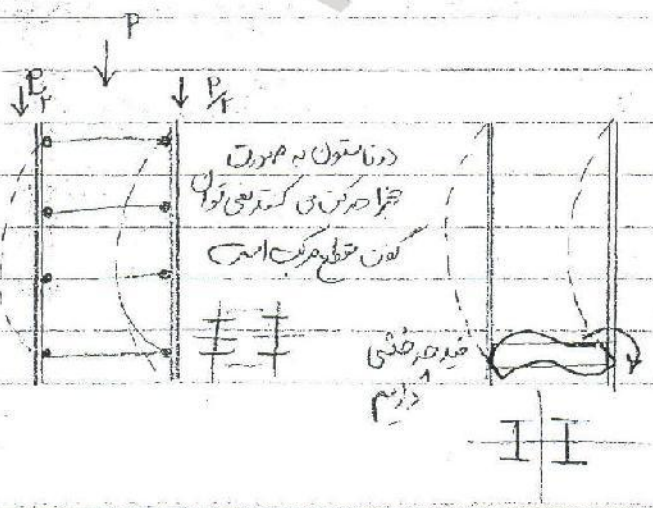 P
P/۲ P/۲
دو تا ستون به صورت
مجزا حرکت می کنند نمی توان
گفت مقطع مرکب است
قید چرخشی
داریم